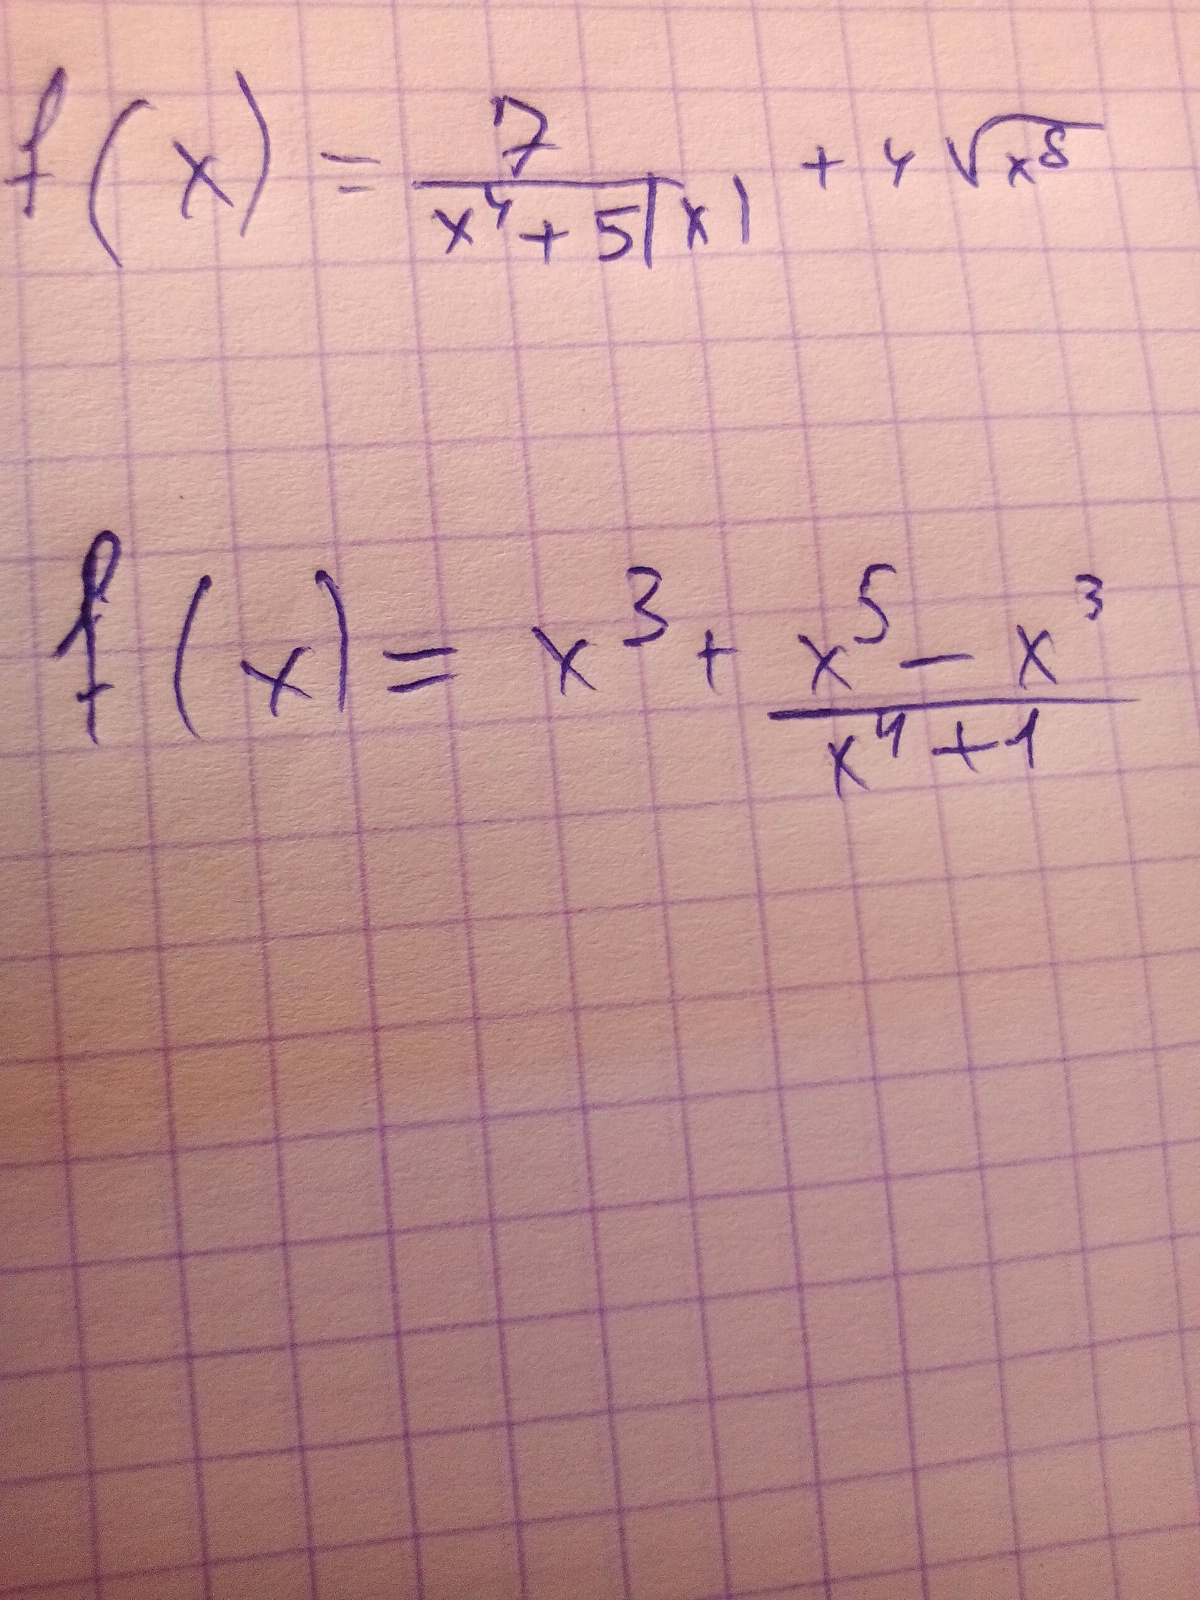 f(x) = 7/(x⁴ + 5|x|) + 4√x⁸
f(x) = x³ + (x⁵ − x³)/(x⁴ + 1)